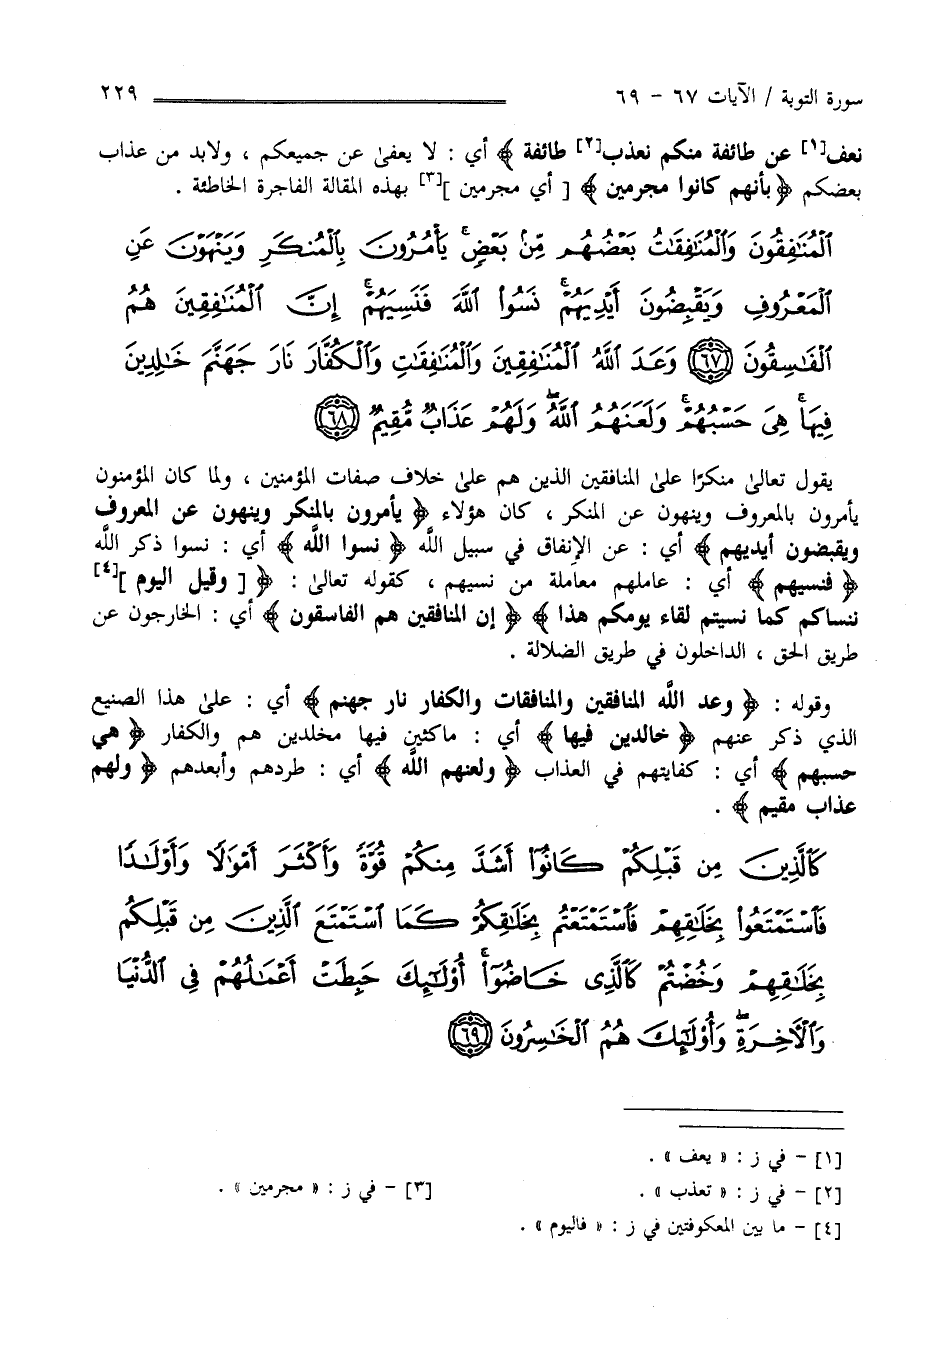 سورة التوبة / الآيات ٦٧ - ٦٩ ٢٢٩
نعف[١] عن طائفة منكم نعذب[٢] طائفة ﴾ أي : لا يعفى عن جميعكم ، ولابد من عذاب
بعضكم ﴿ بأنهم كانوا مجرمين ﴾ [ أي مجرمين ][٣] بهذه المقالة الفاجرة الخاطئة .
ٱلْمُنَٰفِقُونَ وَٱلْمُنَٰفِقَٰتُ بَعْضُهُم مِّنۢ بَعْضٍ ۚ يَأْمُرُونَ بِٱلْمُنكَرِ وَيَنْهَوْنَ عَنِ
ٱلْمَعْرُوفِ وَيَقْبِضُونَ أَيْدِيَهُمْ ۚ نَسُوا۟ ٱللَّهَ فَنَسِيَهُمْ ۚ إِنَّ ٱلْمُنَٰفِقِينَ هُمُ
ٱلْفَٰسِقُونَ ﴿٦٧﴾ وَعَدَ ٱللَّهُ ٱلْمُنَٰفِقِينَ وَٱلْمُنَٰفِقَٰتِ وَٱلْكُفَّارَ نَارَ جَهَنَّمَ خَٰلِدِينَ
فِيهَا ۚ هِىَ حَسْبُهُمْ ۚ وَلَعَنَهُمُ ٱللَّهُ ۖ وَلَهُمْ عَذَابٌ مُّقِيمٌ ﴿٦٨﴾
يقول تعالى منكرًا على المنافقين الذين هم على خلاف صفات المؤمنين ، ولما كان المؤمنون
يأمرون بالمعروف وينهون عن المنكر ، كان هؤلاء ﴿ يأمرون بالمنكر وينهون عن المعروف
ويقبضون أيديهم ﴾ أي : عن الإنفاق في سبيل اللَّه ﴿ نسوا اللَّه ﴾ أي : نسوا ذكر اللَّه
﴿ فنسيهم ﴾ أي : عاملهم معاملة من نسيهم ، كقوله تعالى : ﴿ [ وقيل اليوم ][٤]
ننساكم كما نسيتم لقاء يومكم هذا ﴾ ﴿ إن المنافقين هم الفاسقون ﴾ أي : الخارجون عن
طريق الحق ، الداخلون في طريق الضلالة .
وقوله : ﴿ وعد اللَّه المنافقين والمنافقات والكفار نار جهنم ﴾ أي : على هذا الصنيع
الذي ذكر عنهم ﴿ خالدين فيها ﴾ أي : ماكثين فيها مخلدين هم والكفار ﴿ هي
حسبهم ﴾ أي : كفايتهم في العذاب ﴿ ولعنهم اللَّه ﴾ أي : طردهم وأبعدهم ﴿ ولهم
عذاب مقيم ﴾ .
كَٱلَّذِينَ مِن قَبْلِكُمْ كَانُوٓا۟ أَشَدَّ مِنكُمْ قُوَّةً وَأَكْثَرَ أَمْوَٰلًا وَأَوْلَٰدًا
فَٱسْتَمْتَعُوا۟ بِخَلَٰقِهِمْ فَٱسْتَمْتَعْتُم بِخَلَٰقِكُمْ كَمَا ٱسْتَمْتَعَ ٱلَّذِينَ مِن قَبْلِكُم
بِخَلَٰقِهِمْ وَخُضْتُمْ كَٱلَّذِى خَاضُوٓا۟ ۚ أُو۟لَٰٓئِكَ حَبِطَتْ أَعْمَٰلُهُمْ فِى ٱلدُّنْيَا
وَٱلْءَاخِرَةِ ۖ وَأُو۟لَٰٓئِكَ هُمُ ٱلْخَٰسِرُونَ ﴿٦٩﴾
[١] - في ز : « يعف » .
[٢] - في ز : « تعذب » . [٣] - في ز : « مجرمين » .
[٤] - ما بين المعكوفتين في ز : « فاليوم » .